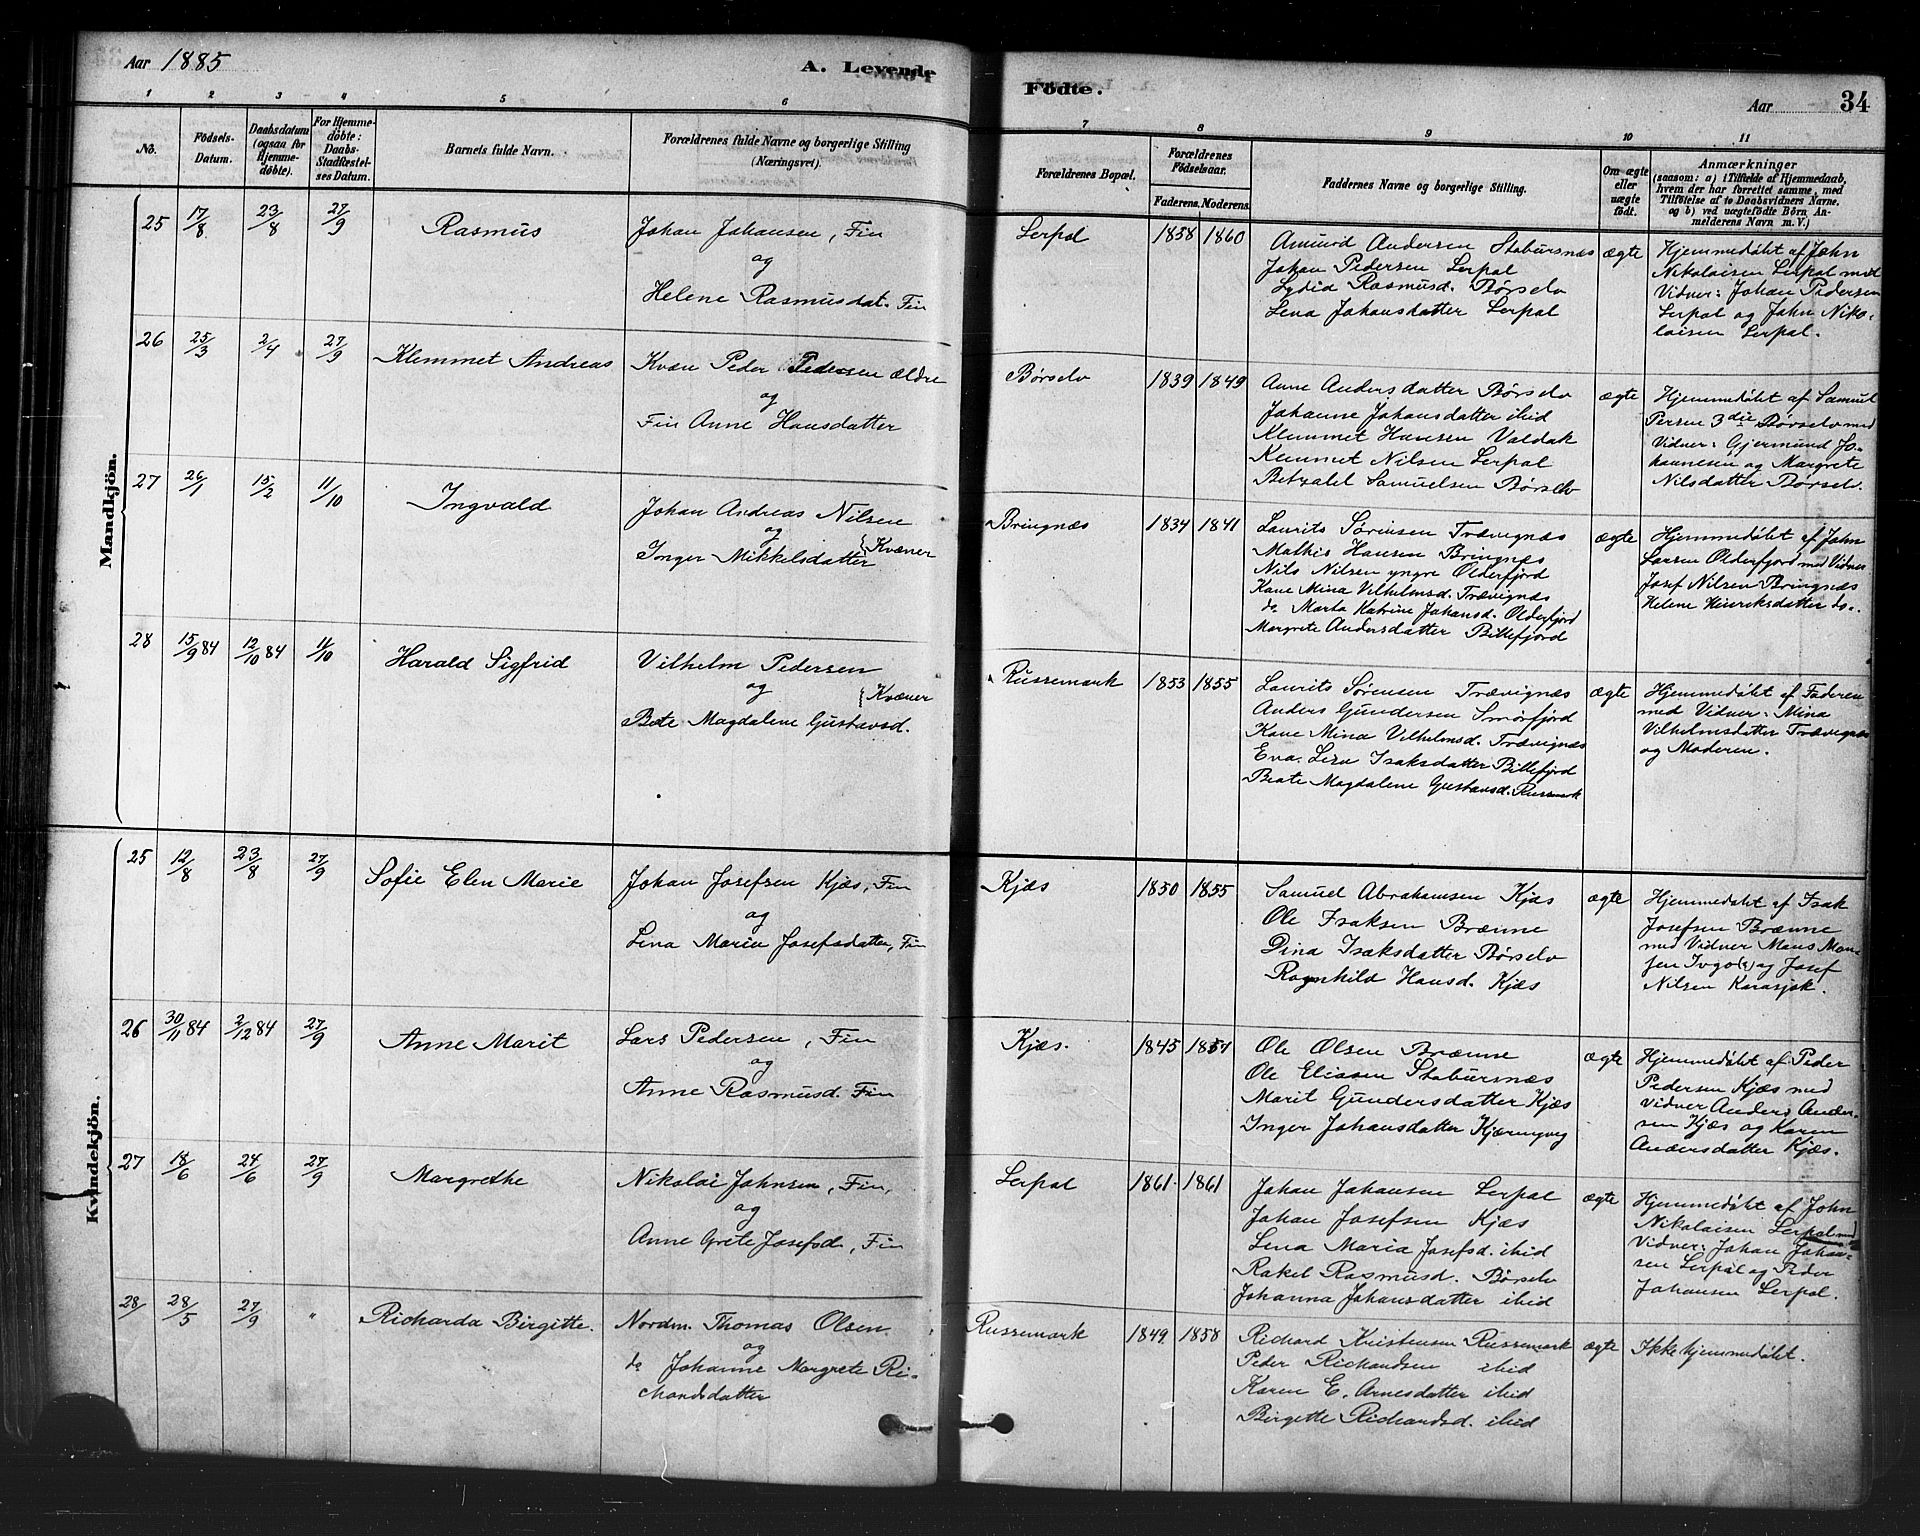 Aar 1885
A. Levende
Födte.
Aar
34
1 2 3 4 5 6 7 8 9 10 11
No.
Födsels-
Datum.
Daabsdatum
(ogsaa for
Hjemme-
döbte).
For Hjemme-
döbte:
Daabs-
Stadfæstel-
ses Datum.
Barnets fulde Navn.
Forældrenes fulde Navne og borgerlige Stilling
(Næringsvei).
Forældrenes Bopæl.
Forældrenes
Födselsaar.
Faderens. Moderens.
Faddernes Navne og borgerlige Stilling.
Om ægte
eller
uægte
födt.
Anmærkninger
(saasom: a) i Tilfælde af Hjemmedaab,
hvem der har forrettet samme, med
Tilföielse af to Daabsvidners Navne.
og b) ved uægtefödte Börn An-
melderens Navn m. V.)
Mandkjön.
25 17/8 23/8 27/9
Rasmus
Johan Johansen, Fin
og
Helene Rasmusdat. Fin
Lerpol
1858 1860
Amund Andersen Stabursnæs
Johan Pedersen Lerpol
Lydia Rasmusd. Børselv
Lena Johansdatter Lerpol
ægte
Hjemmedøbt af John
Nikolaisen Lerpol med
Vidner: Johan Pedersen
Lerpol og John Niko-
laisen Lerpol.
26 25/3 2/4 27/9
Klemmet Andreas
Kvæn Peder Pedersen ældre
og
Fin Anne Hansdatter
Børselv
1839 1849
Anne Andersdatter Børselv
Johanne Johansdatter ibid
Klemmet Hansen Valdak
Klemmet Nilsen Lerpol
Betzalel Samuelsen Børselv
ægte
Hjemmedøbt af Samuel
Persen 3die Børselv med
Vidner: Gjermund Jo-
hannesen og Margrete
Nilsdatter Børselv.
27 26/1 15/2 11/10
Ingvald
Johan Andreas Nilsen
og
Kvæner
Inger Mikkelsdatter
Bringnæs
1834 1841
Laurits Sørensen Trævignæs
Mathis Hansen Bringnæs
Nils Nilsen yngre Olderfjord
Kone Mina Vilhelmsd. Trævignæs
do Marta Katrine Johansd. Olderfjord
Margrete Andersdatter Billefjord
ægte
Hjemmedøbt af John
Larsen Olderfjord med Vidner
Josef Nilsen Bringnæs
Helene Henriksdatter do.
28 15/9 84 12/10 84 11/10
Harald Sigfrid
Vilhelm Pedersen
og
Kvæner
Beate Magdalene Gustavsd.
Russemark
1853 1855
Laurits Sørensen Trævignæs
Anders Gundersen Smørfjord
Kone Mina Vilhelmsd. Trævignæs
Eva Lisa Isaksdatter Billefjord
Beate Magdalene Gustavsd. Russmark
ægte
Hjemmedøbt af Faderen
med Vidner: Mina
Vilhelmsdatter Trævignæs
og Moderen.
Kvindekjön.
25 12/8 23/8 27/9
Sofie Elen Marie
Johan Josefsen Kjæs, Fin
og
Lena Maria Josefsdatter, Fin
Kjæs
1850 1855
Samuel Abrahamsen Kjæs
Ole Isaksen Brænne
Dina Isaksdatter Børselv
Ragnhild Hansd. Kjæs
ægte
Hjemmedøbt af Isak
Josefsen Brænne
med Vidner Mons Mon-
sen Ivgo(?) og Josef
Nilsen Karasjok.
26 30/11 84 2/12 84 27/9
Anne Marit
Lars Pedersen, Fin
og
Anne Rasmusd. Fin
Kjæs.
1845
Ole Olsen Brænne
Ole Elissen Stabursnæs
Marit Gundersdatter Kjæs
Inger Johansdatter Kjæringvig
ægte
Hjemmedøbt af Peder
Pedersen Kjæs med
Vidner Anders Ander-
sen Kjæs og Karen
Andersdatter Kjæs.
27 18/6 24/6 27/9
Margrethe
Nikolai Johnsen, Fin,
og
Anne Grete Josefsd, Fin
Lerpol
1861 1861
Johan Johansen Lerpol
Johan Josefsen Kjæs
Lena Maria Josefsd. ibid
Rakel Rasmusd. Børselv
Johanna Johansdatter ibid
ægte
Hjemmedøbt af John
Nikolaisen Lerpol med
Vidner: Johan Johan-
sen Lerpol og Peder
Johansen Lerpol.
28/ 28/5 27/9 "
Richarda Birgitte.
Nordm. Thomas Olsen
og
do Johanne Margrete Ri-
chardsdatter
Russemark
1849 1858
Richard Kristensen Russemark
Peder Richardsen ibid
Karen E. Arnesdatter ibid
Birgitte Richardsd. ibid
ægte
Ikke hjemmedøbt.